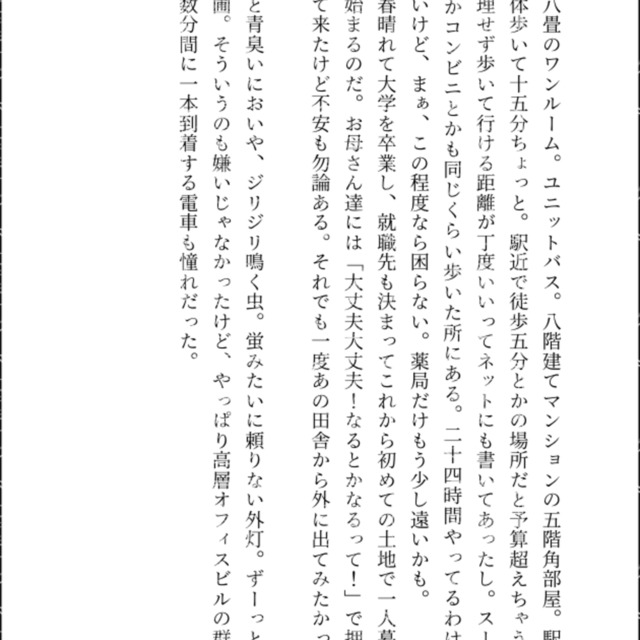 八畳のワンルーム。ユニットバス。八階建てマンションの五階角部屋。駅
体歩いて十五分ちょっと。駅近で徒歩五分とかの場所だと予算超えちゃう
理せず歩いて行ける距離が丁度いいってネットにも書いてあったし。ス
かコンビニとかも同じくらい歩いた所にある。二十四時間やってるわけ
いけど、まぁ、この程度なら困らない。薬局だけもう少し遠いかも。
春晴れて大学を卒業し、就職先も決まってこれから初めての土地で一人暮
始まるのだ。お母さん達には「大丈夫大丈夫！なるとかなるって！」で押
て来たけど不安も勿論ある。それでも一度あの田舎から外に出てみたかっ
と青臭いにおいや、ジリジリ鳴く虫。蛍みたいに頼りない外灯。ずーっと
圃。そういうのも嫌いじゃなかったけど、やっぱり高層オフィスビルの群
数分間に一本到着する電車も憧れだった。